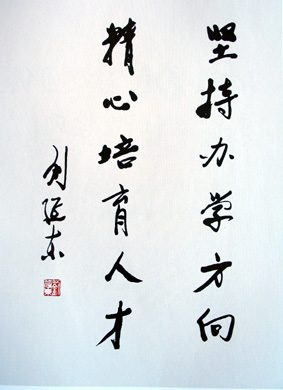 坚持办学方向
精心培育人才
刘延东